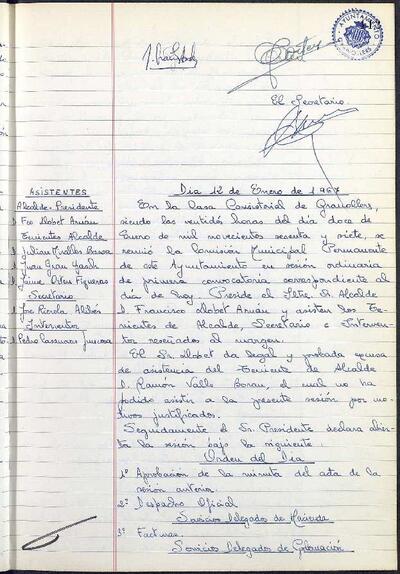 AYUNTAMIENTO
El Secretario
ASISTENTES
Alcalde-Presidente
D. Fco Llobet Arnán
Tenientes Alcalde
D. Juan Grau
D. Jaime Figueras
Secretario
D. Jose Ricola
Interventor
D. Pedro
Dia 12 de Enero de 1967
En la Casa Consistorial de Granollers,
siendo las ventidós horas del día doce de
Enero de mil novecientos sesenta y siete, se
reunió la Comisión Municipal Permanente
de este Ayuntamiento en sesión ordinaria
de primera convocatoria correspondiente al
día de hoy. Preside el Iltre. Sr. Alcalde
D. Francisco Llobet Arnán y asisten los Te-
nientes de Alcalde, Secretario e Interven-
tor reseñados al margen.
El Sr. Llobet da legal y probada excusa
de asistencia del Teniente de Alcalde
D. Ramón Valls Bonau, el cual no ha
podido asistir a la presente sesión por mo-
tivos justificados.
Seguidamente el Sr. Presidente declara abier-
ta la sesión bajo la siguiente
Orden del Dia
1º Aprobación de la minuta del acta de la
sesión anterior.
2º Despacho Oficial
Servicios Delegados de Hacienda
3º Facturas.
Servicios Delegados de Gobernación